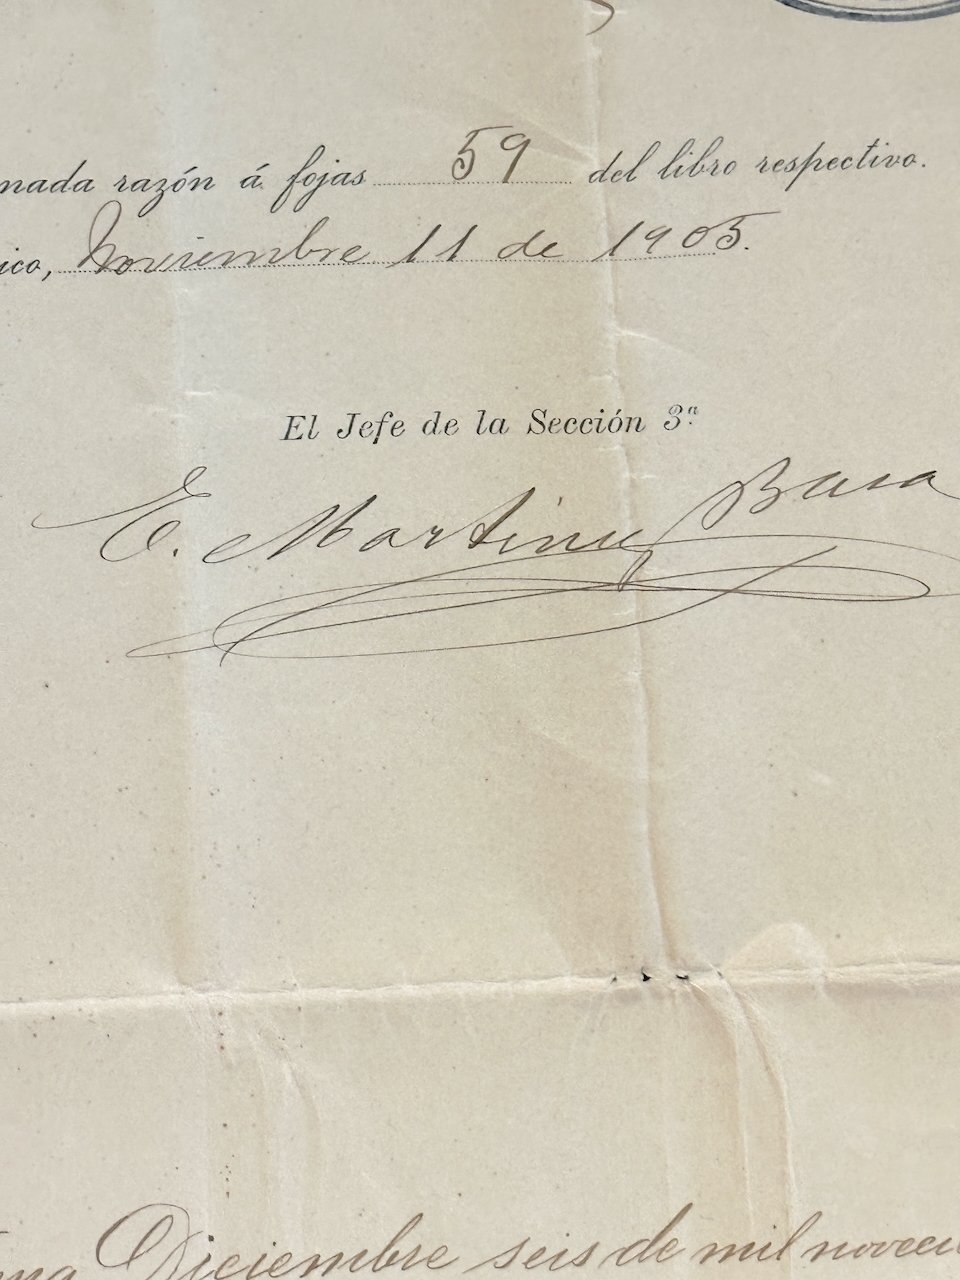 nada razón á fojas 59 del libro respectivo.
ico, Noviembre 11 de 1905.
El Jefe de la Sección 3ª
E. Martinez Baca
Diciembre seis de mil noveci